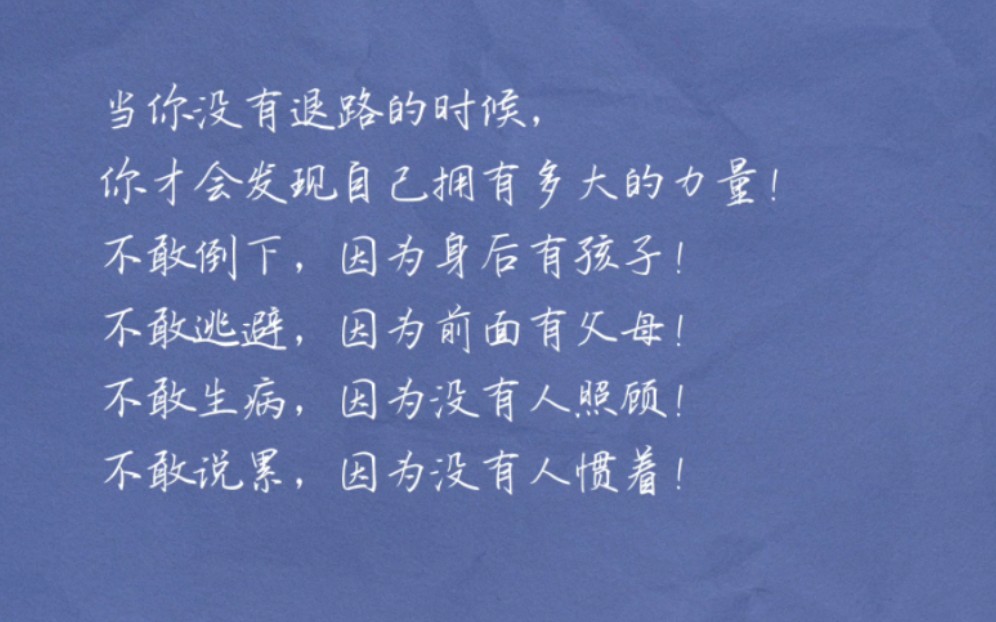 当你没有退路的时候，
你才会发现自己拥有多大的力量！
不敢倒下，因为身后有孩子！
不敢逃避，因为前面有父母！
不敢生病，因为没有人照顾！
不敢说累，因为没有人惯着！